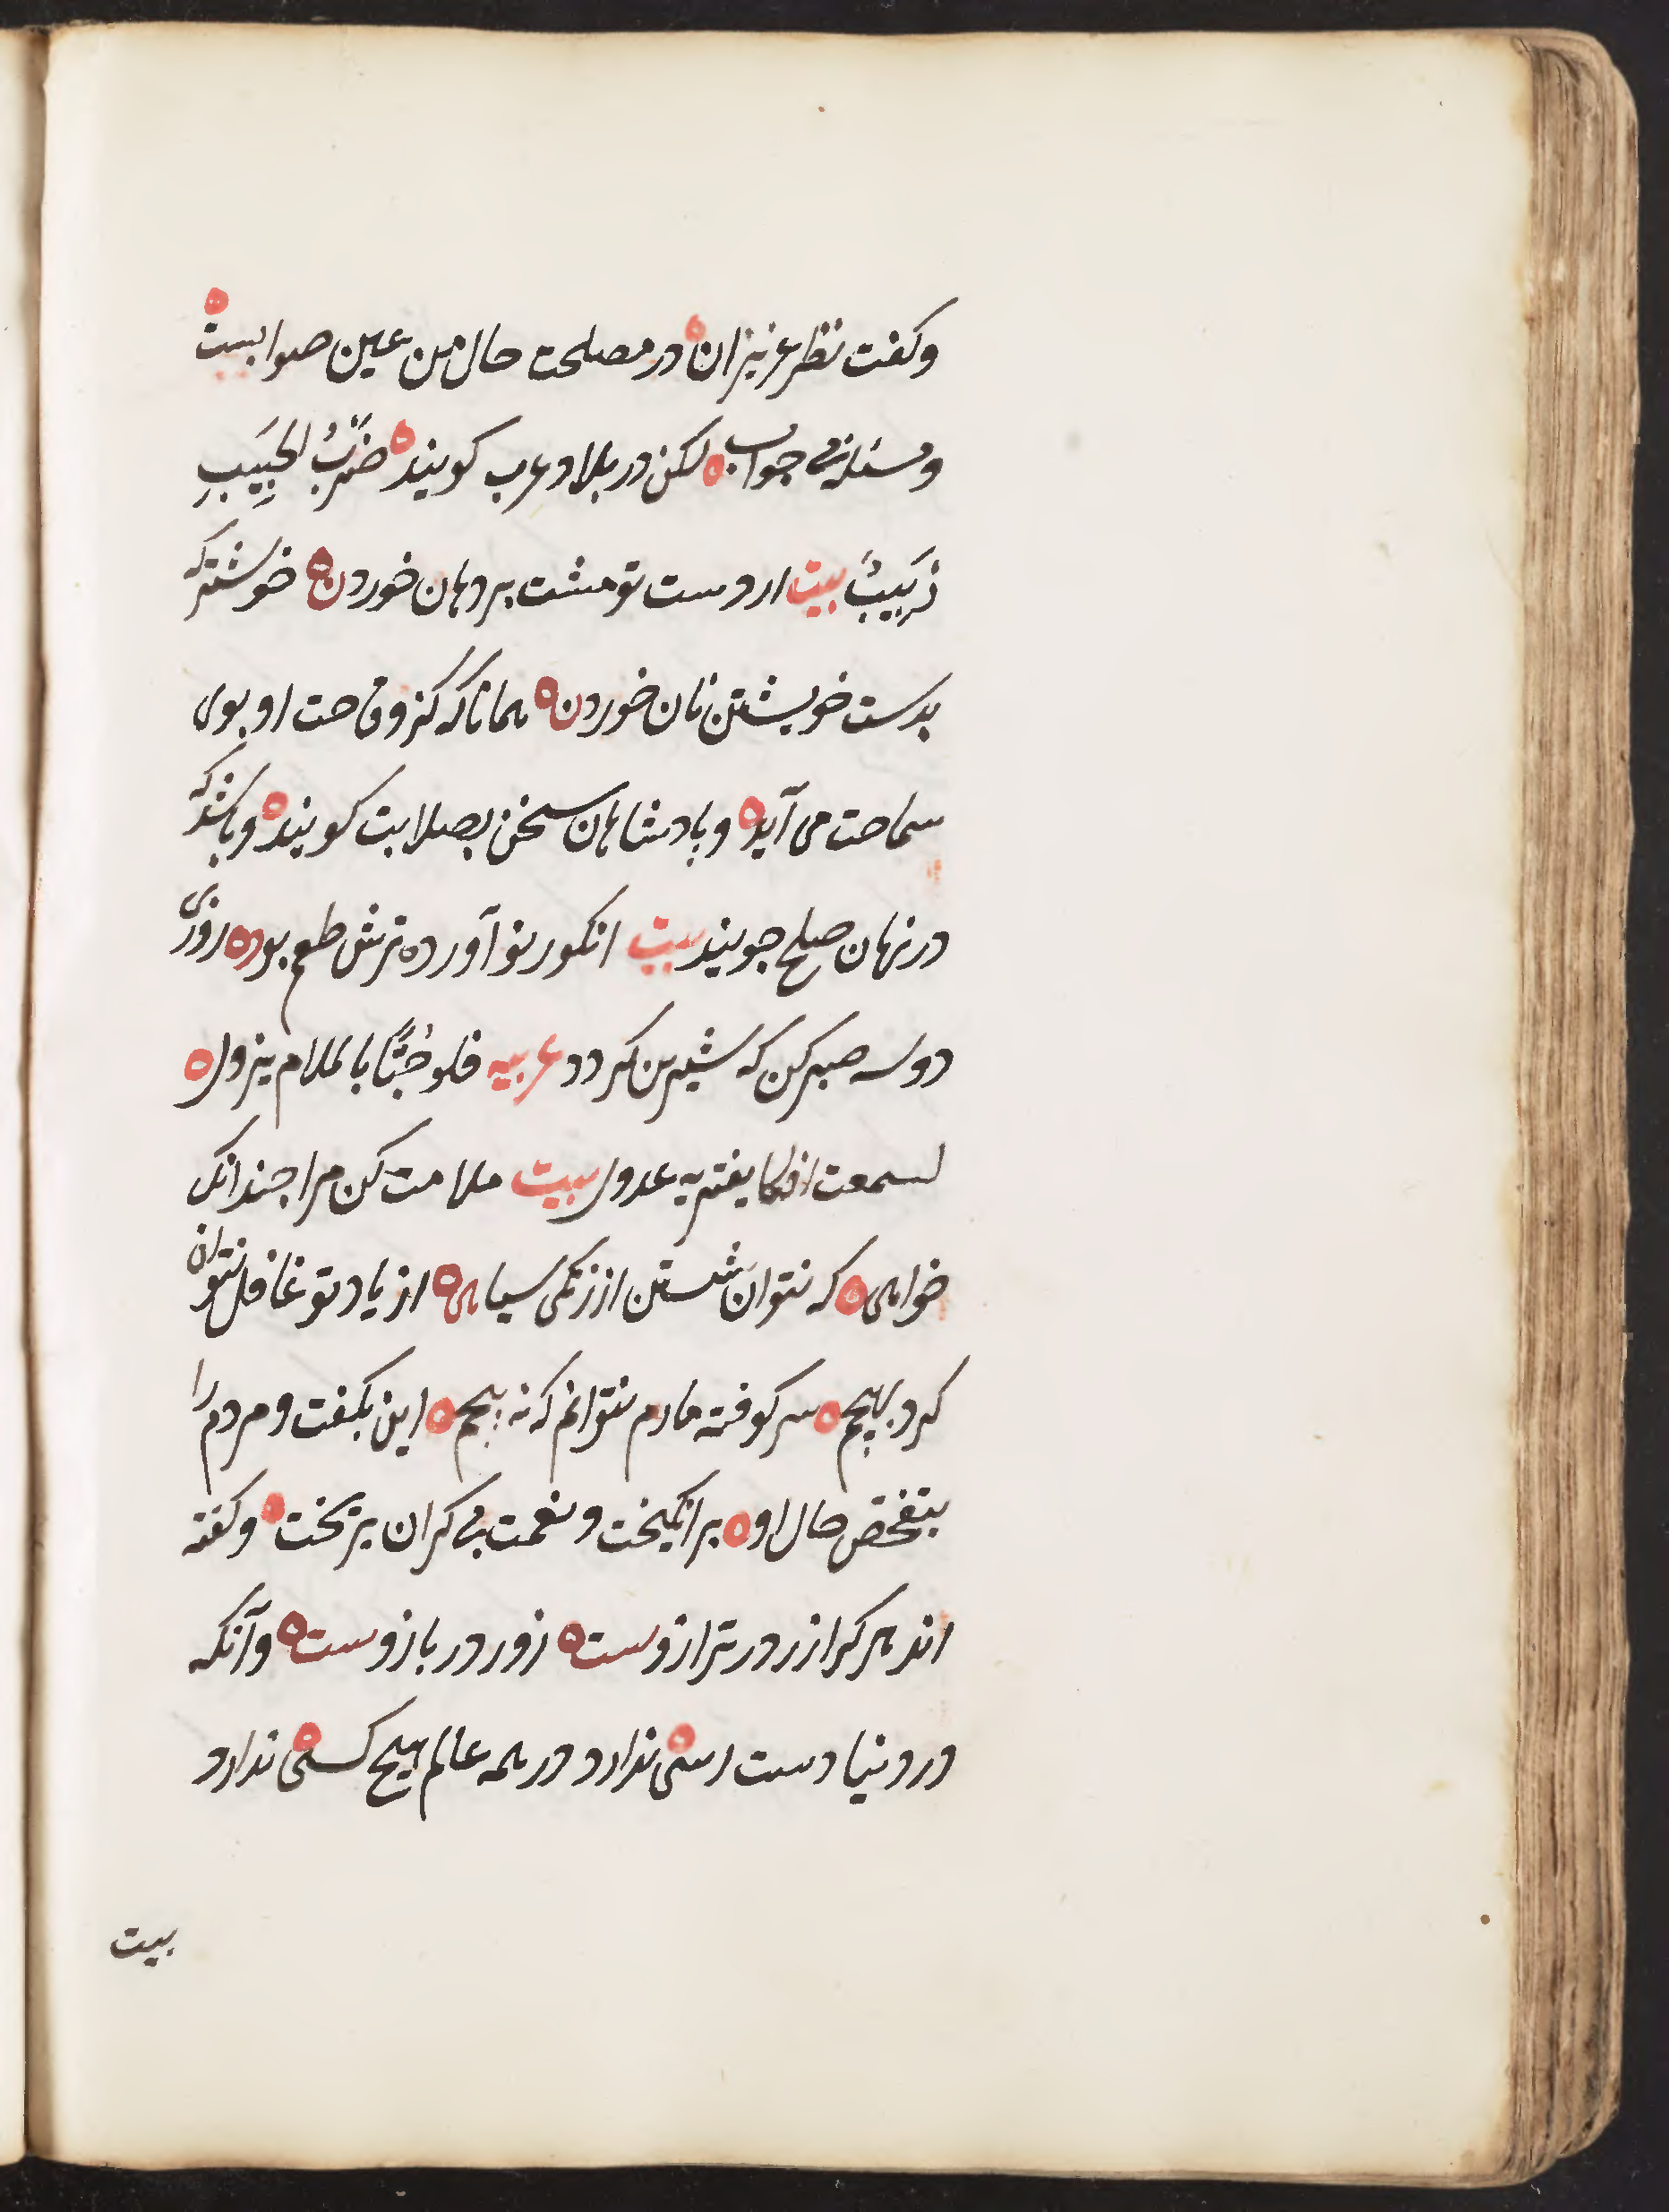 وکفت نظر عزیزان در مصلحت حال من عین صوابست
ومسئله بی جواب لکن در بلاد عرب کویند ضَرْبُ الحَبِیبِ
زَبِیبُ بیت از دست تو مشت بر دهان خوردن خوشترکه
بدست خویشتن نان خوردن همانا که کز وقاحت او بوی
سماحت می آید و پادشاهان سخن بصلابت کویند و باشد که
در نهان صلح جویند بیت انکور نو آورده ترش طعم بود روزی
دو سه صبر کن که شیرین کردد عربیه فلو حُبًّا بالملام یزول
لسمعت افکا یفتریه عدول بیت ملامت کن مرا چندانک
خواهی که نتوان شستن از زنکی سیاهی از یاد تو غافل نتوان
کرد بهیچم سر کوفته مارم نتوانم که نپیچم این بکفت و مردم را
بتفحّص حال او برانکیخت و نعمت بی کران بریخت و کفته
اند هر کرا زر در ترازوست زور در بازوست وآنکه
در دنیا دست رسی ندارد در همه عالم هیچ کسی ندارد
بیت